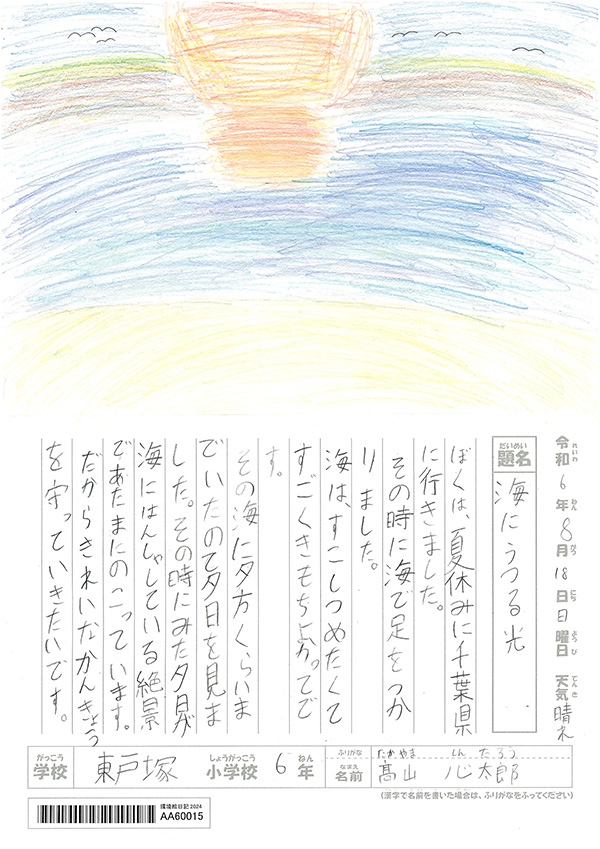 令和6年8月18日日曜日 天気晴れ
れいわ ねん がつ にち ようび てんき
だいめい
題名 海にうつる光
ぼくは、夏休みに千葉県
に行きました。
その時に海で足をつか
りました。
海は、すこしつめたくて
すごくきもちよかってで
す。
その海に夕方くらいま
でいたので夕日を見ま
した。その時にみた夕日が
海にはんしゃしている絶景
であたまにのこっています。
だからきれいなかんきょう
を守っていきたいです。
がっこう しょうがっこう ねん
学校 東戸塚 小学校 6年
ふりがな たかやま しんたろう
なまえ
名前 髙山 心太郎
(漢字で名前を書いた場合は、ふりがなをふってください)
環境絵日記2024
AA60015